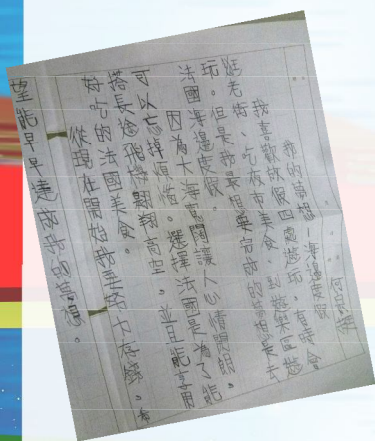 我的夢想—海邊度假
我喜歡放假四處遊玩。有時會
逛老街、吃夜市美食、到遊樂區遊
玩。但是我最想要的夢想是去
法國海邊度假。
因為大海寬闊讓人心情開朗。
可以忘掉煩惱。選擇法國是為了能
搭長途飛機翱翔高空。並且能享用
好吃的法國美食。
從現在開始我要努力存錢。希
望能早早達成我的夢想。